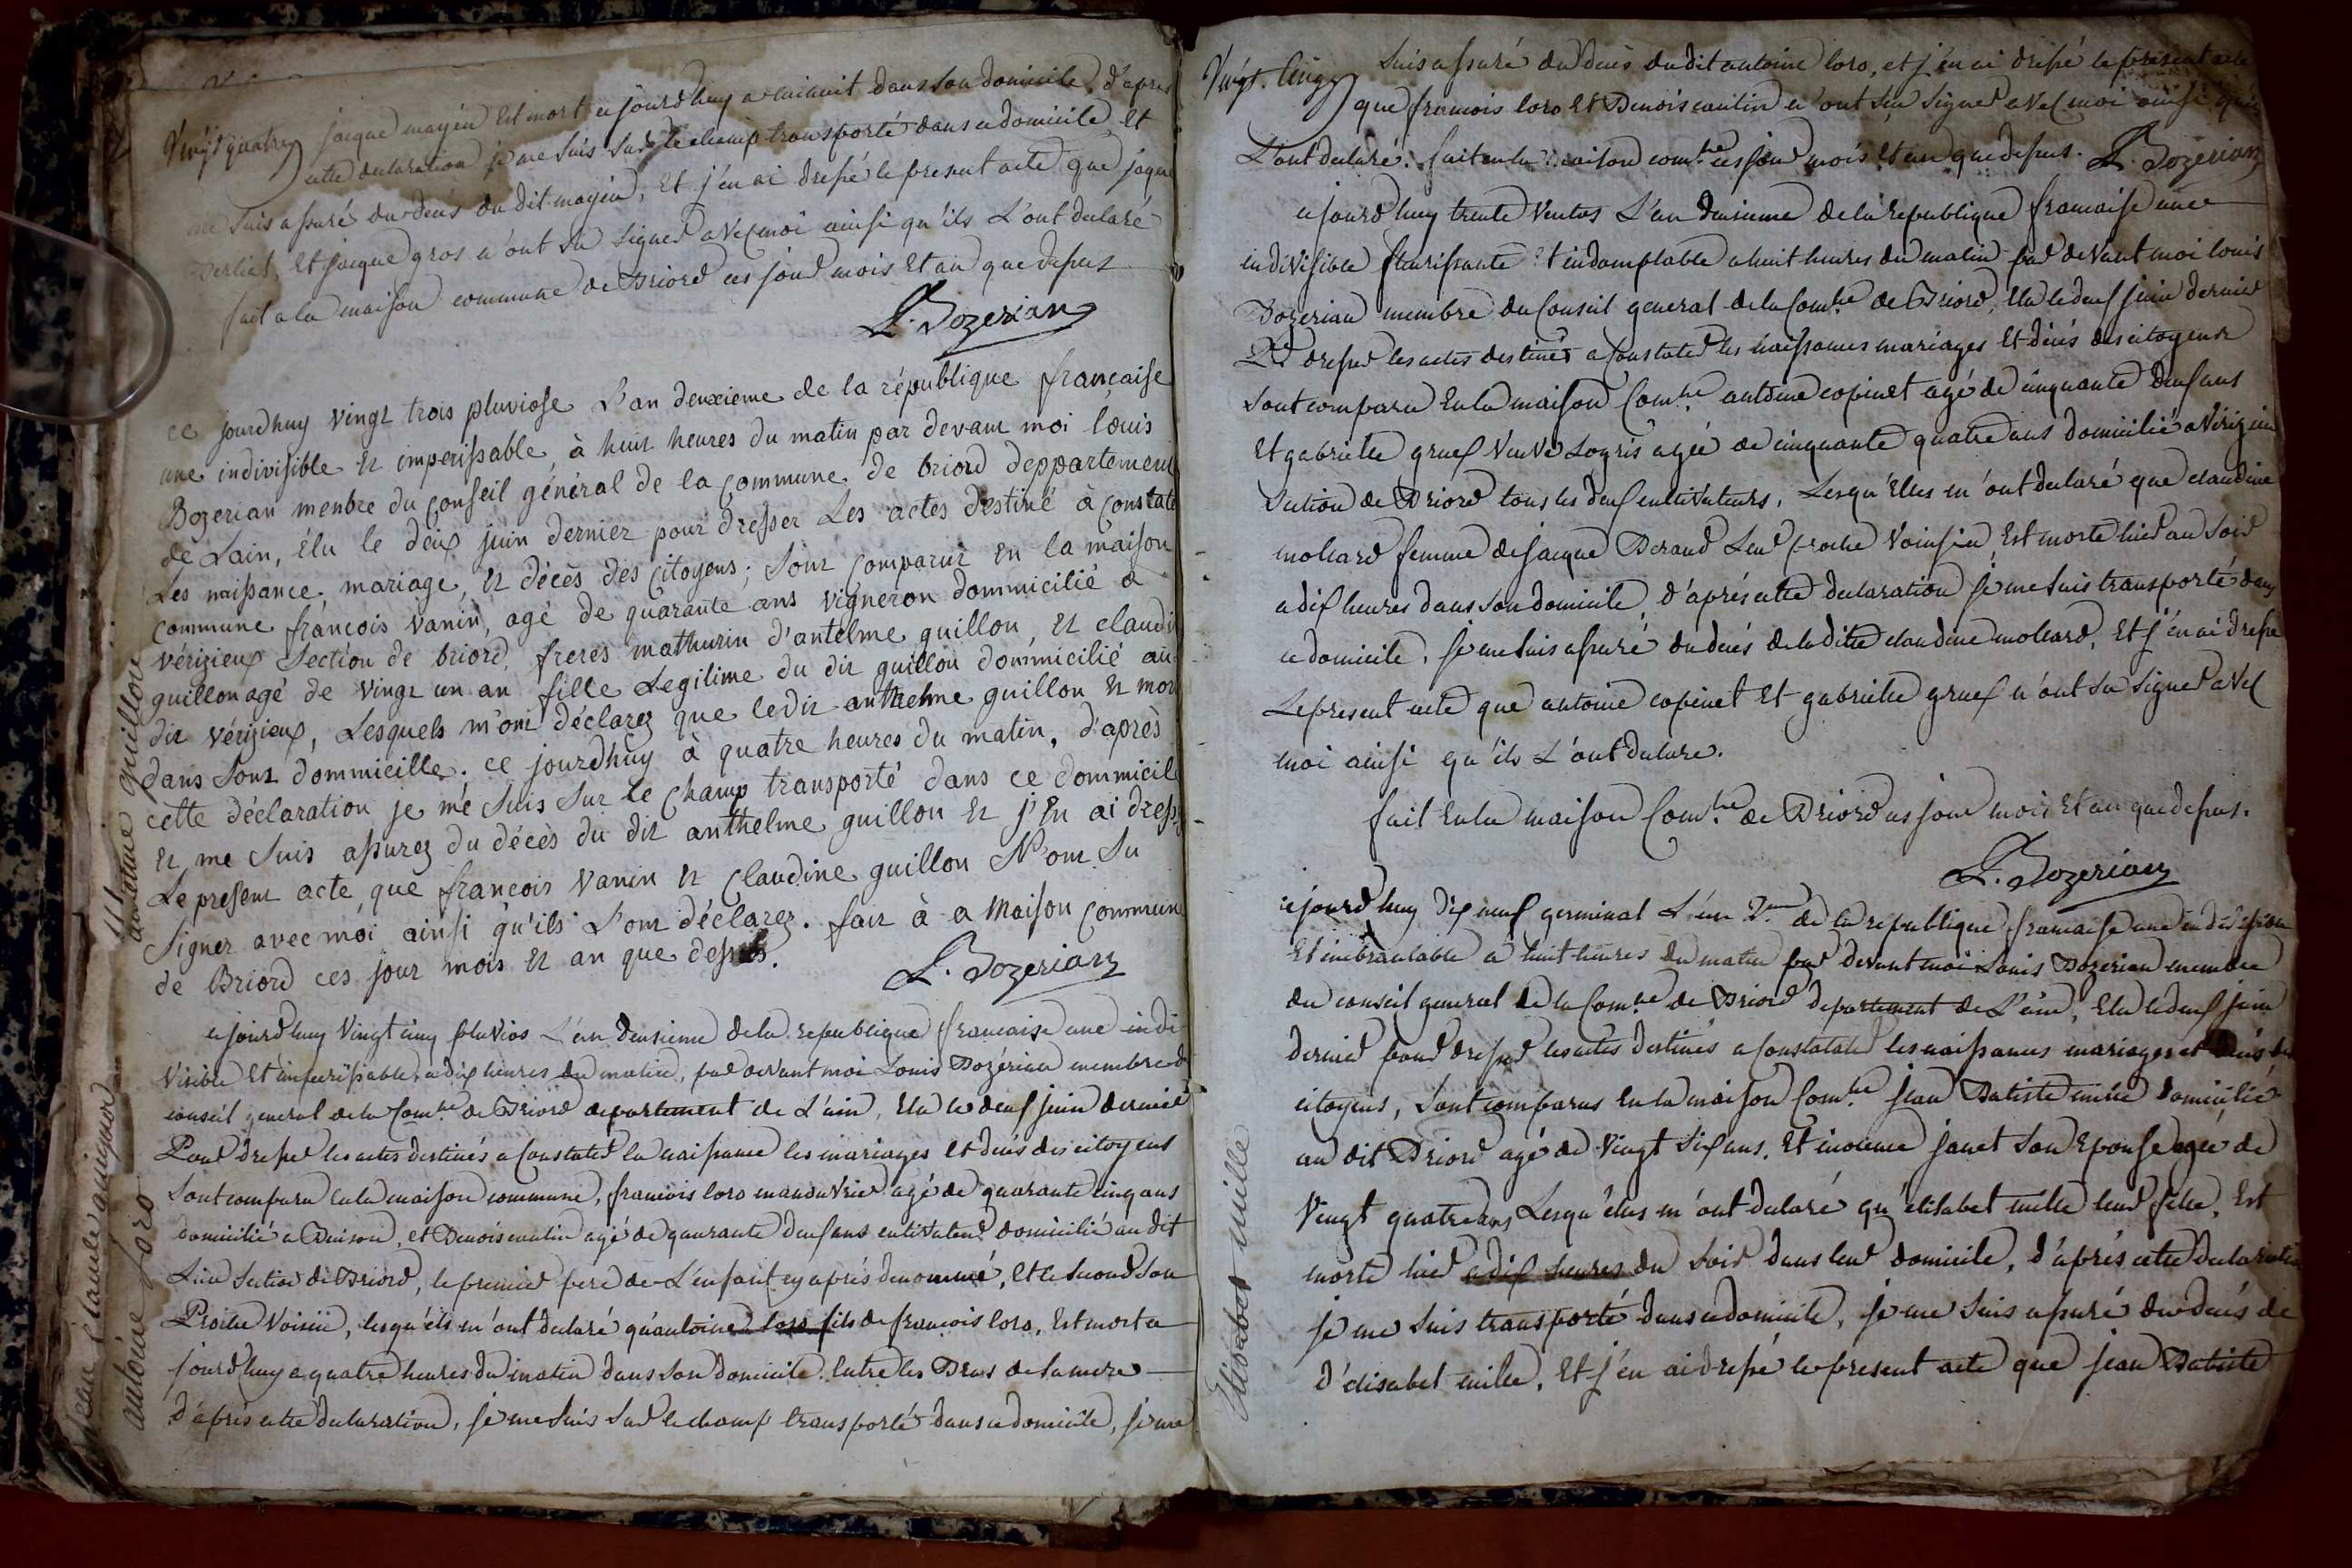 Vingt quatre
jacque mayen Est mort ce jourdhuy a minuit dans son domicile, d'apres
cette declaration je me suis sur le champ transporté dans ce domicile et
me suis assuré du decés du dit mayen, Et j'en ai dressé le present acte que jaque
Berliet, Et jacque gros n'ont su signer avec moi ainsi qu'ils L'ont declaré
fait a la maison commune de Briord ces jour mois Et an que dessus
L. Bozerian
ce jourdhuy vingt trois pluviose L'an deuxieme de la république francaise
une indivisible et imperissable à huit heures du matin par devant moi louis
Bozerian menbre du conseil général de la commune de briord deppartement
de Lain, élu le deux juin dernier pour dresser Les actes destiné à constate
Les naissance, mariage, et décès des citoyens; Sont comparut en la maison
commune francois vanin, agé de quarante ans vigneron dommicilié a
vérizieux Section de briord, freres mathurin d'antelme guillon, et claudi
guillon agé de vingt un an fille Legitime du dit guillon dommicilié au
dit vérizieux, Lesquels m'ont déclarez que ledit anthelme guillon et mor
dans Sont dommicille. ce jourdhuy à quatre heures du matin, d'après
cette déclaration je me suis sur le champ transporté dans ce dommicil
et me suis assurez du décès du dit anthelme guillon et j'en ai dress
Le present acte, que francois vanin et Claudine guillon N'ont Su
Signer avec moi ainsi qu'ils L'ont déclarez. fait à a Maison commun
de Briord ces jour mois et an que dessus.
L. Bozerian
antelme guillon
ce jourdhuy Vingt cinq pluvios L'an deusieme de la republique francaise une indi
visible Et imperissable, a dix heures du matin, par devant moi Louis Bozérian membre d
conseil general de la Com.ne de Briord departement de L'ain, Elu le deux juin dernié
Pour dresser les actes destinés a Constater la naissance les mariages et decés des citoyens
Sont comparu en la maison commune, francois loro manouvrier agé de quarante cinq ans
domicilié a Buison, et Benois cautin agé de quarante deux ans cultivateur domicilié au dit
Lieu Section de Briord, le premier pere de L'enfant cy aprés denommé, Et le second son
Proche Voisin, lesqu'els m'ont declaré qu'antoine loro fils de francois loro, Est mort ce
jourdhuy a quatre heures du matin dans son domicile. Entre les Bras de sa mere
D'aprés cette declaration, je me suis sur le champ transporté dans ce domicile, je me
jean claude quiquand
antoine loro
Vingt. Cinq
suis assuré du decés du dit antoine loro, et j'en ai dressé le present acte
que francois loro Et Benois cautin n'ont su signer avec moi ainsi qu'ils
L'ont declaré. fait en la maison com.ne ces jour mois Et an que dessus. L. Bozerian
ce jourdhuy trente Ventos L'an deusieme de la republique francaise une
indivisible florissante Et indomptable a huit heures du matin par devant moi louis
Bozerian membre du Conseil general de la Com.ne de Briord, Elu le deux juin dernier
dresser les actes destinés a Constater les naissances mariages Et décés des citoyens
Sont comparu En la maison Com.ne antoine copinet agé de cinquante deux ans
Et gabrielle gruex Veuve Logris agée de cinquante quatre ans domicilié a Verizieu
Section de Briord tous les deux cultivateurs, Lesqu'Elles m'ont declaré que claudine
moliard femme de jacque Beraud Leur proche Voisin, Est morte hier au soir
a dix heures dans son domicile, d'aprés cette declaration je me suis transporté dans
ce domicile. je me suis assuré du decés de la dite claudine moliard, Et j'en ai dressé
Le present acte que antoine copinet Et gabrielle gruex n'ont su signer avec
moi ainsi qu'ils L'ont declare.
fait En la maison Com.ne de Briord ces jour mois Et an que dessus.
L. Bozerian
ce jourd'huy dix neuf germinal L'an 2.me de la republique francaise une indivisible
Et inebranlable a huit heures du matin par devant moi Louis Bozerian membre
du conseil general de la Com.ne de Briord departement de L'ain, Elu le deux juin
dernier pour dresser les actes destinés a Constater les naissances mariages et decés des
citoyens, Sont comparus En la maison Com.ne jean Batiste mille domicilié
au dit Briord agé de Vingt six ans. Et inocence janet Son Epouse agée de
Vingt quatre ans Lesqu'elles m'ont declaré qu'elisabet mille leur fille, Est
morte hier a dix heures du soir dans leur domicile, d'aprés cette declaration
je me suis transporté dans ce domicile, je me suis assuré du decés de
d'elisabet mille, Et j'en ai dressé le present acte que jean Batiste
Elisabet mille